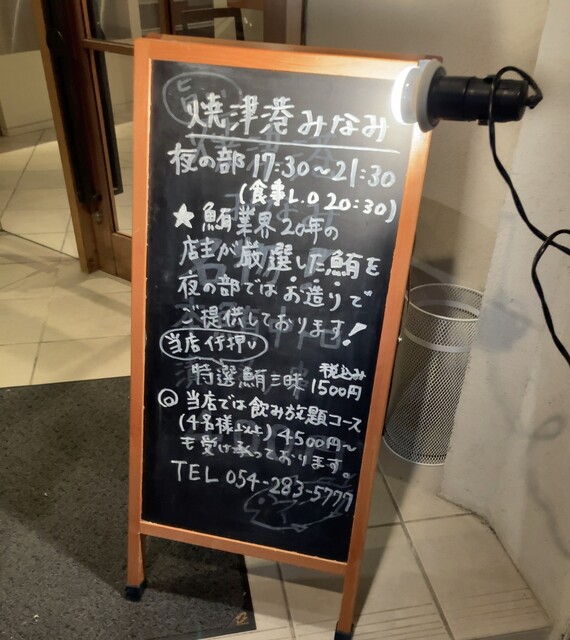 旨
焼津港みなみ
夜の部 17:30～21:30
(食事L.O 20:30)
★鮪業界20年の
店主が厳選した鮪を
夜の部ではお造りで
ご提供しております!
当店イチ押し
特選鮪三昧 税込み1500円
◎当店では飲み放題コース
(4名様以上) 4500円～
も受け承っております。
TEL 054-283-5777